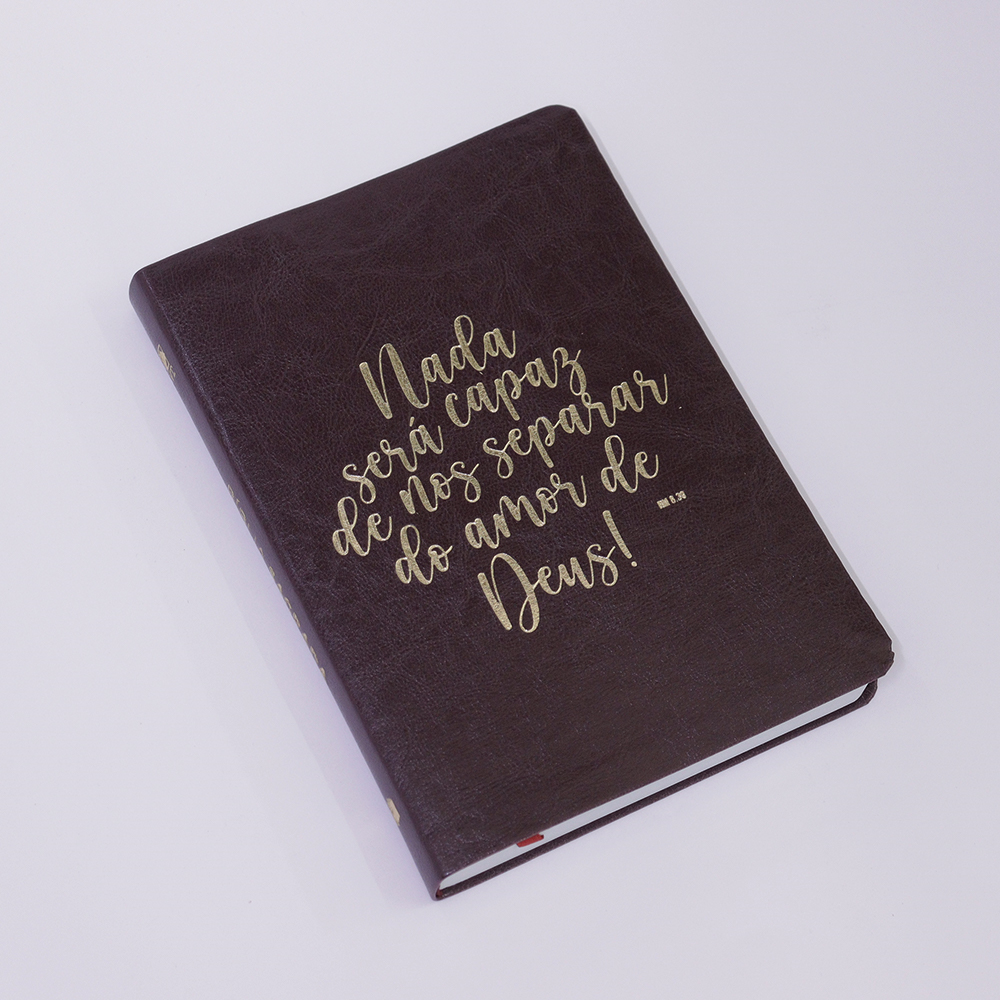 Nada
será capaz
de nos separar
do amor de
Deus!
RM 8.39